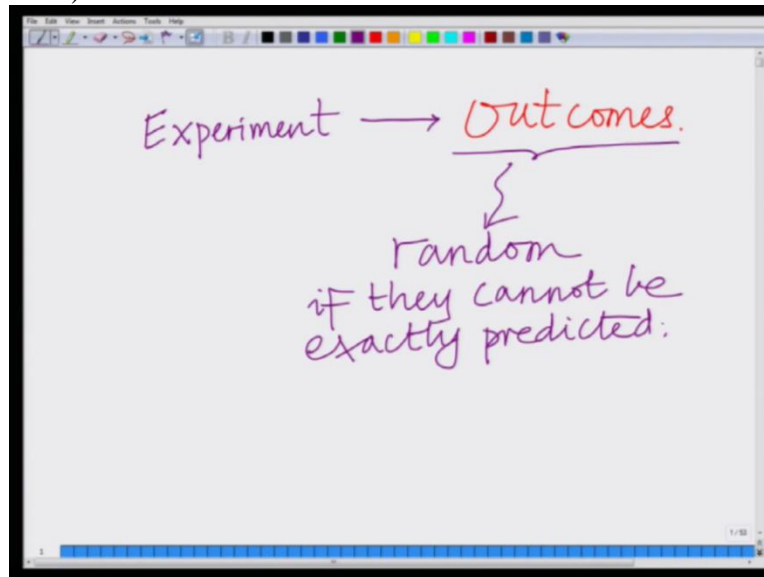 File Edit View Insert Actions Tools Help
B I
Experiment → Outcomes.
random
if they cannot be
exactly predicted.
1 / 53
1